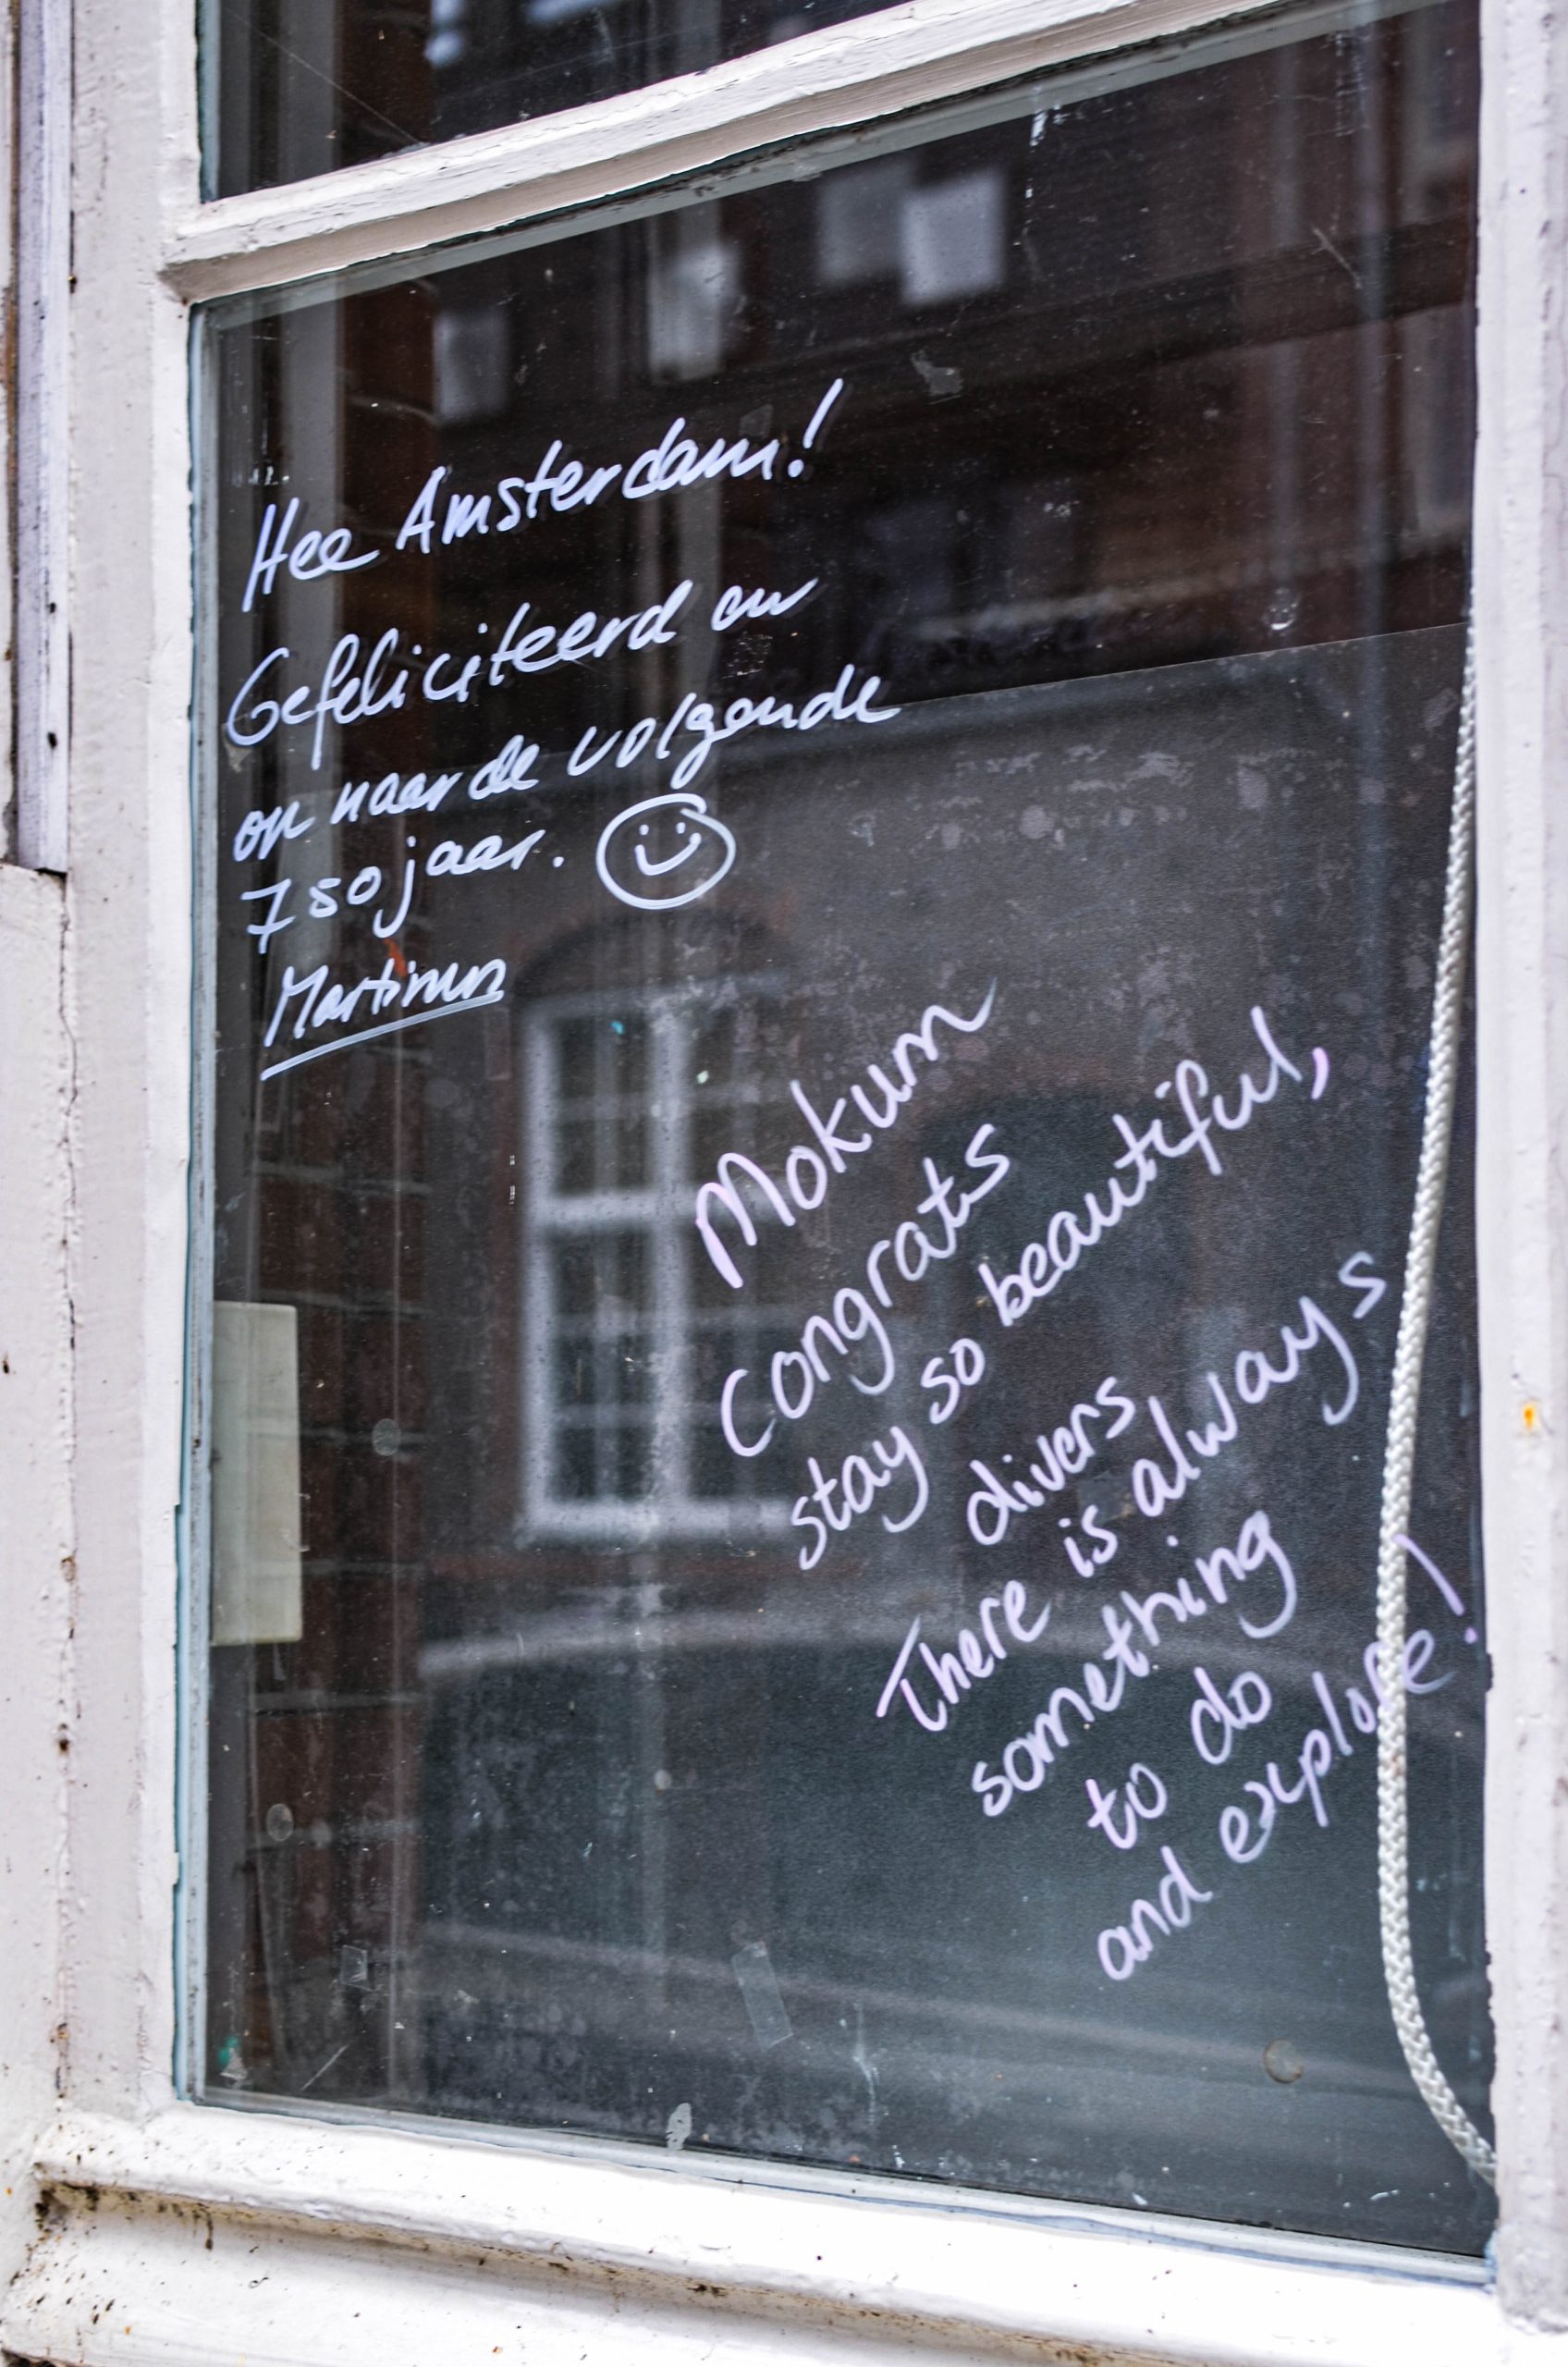 Hee Amsterdam!
Gefeliciteerd en
op naar de volgende
750 jaar.
Martinus
Mokum
Congrats
stay so beautiful,
divers
There is always
something
to do
and explore!